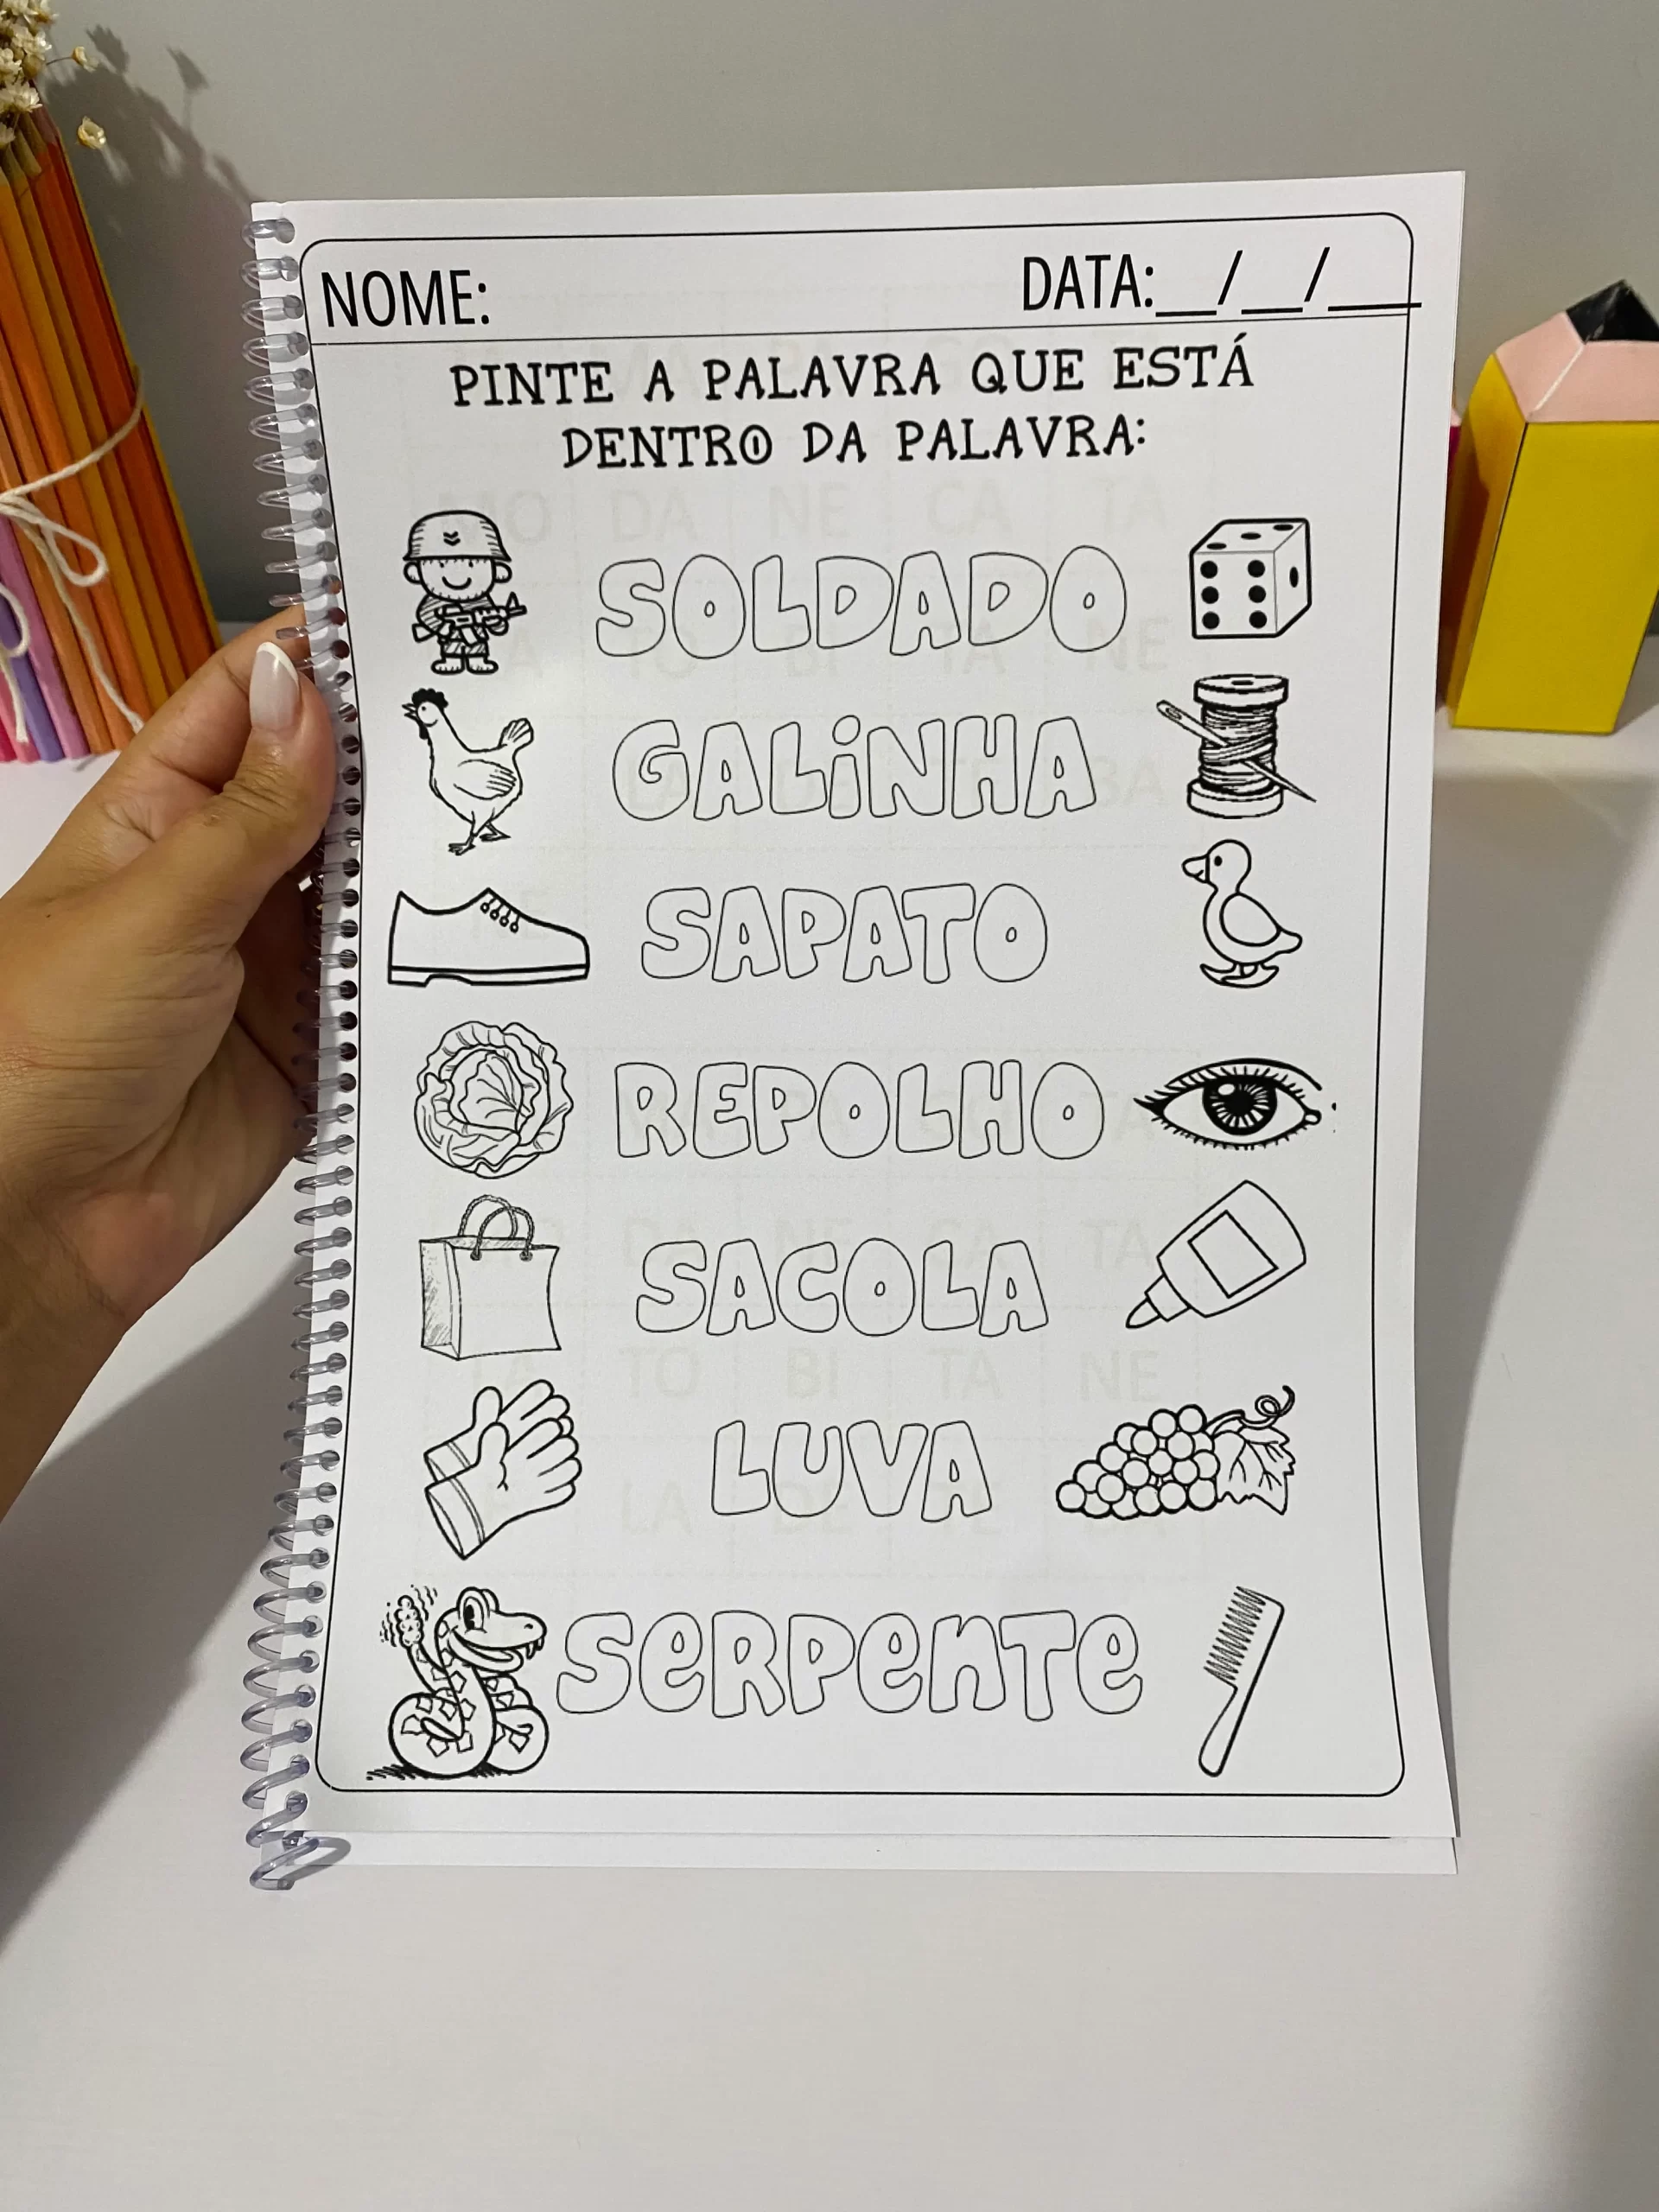 NOME: DATA:__/__/___
PINTE A PALAVRA QUE ESTÁ
DENTRO DA PALAVRA:
SOLDADO
GALiNHA
SAPATO
REPOLHO
SACOLA
LUVA
SeRPeNTe